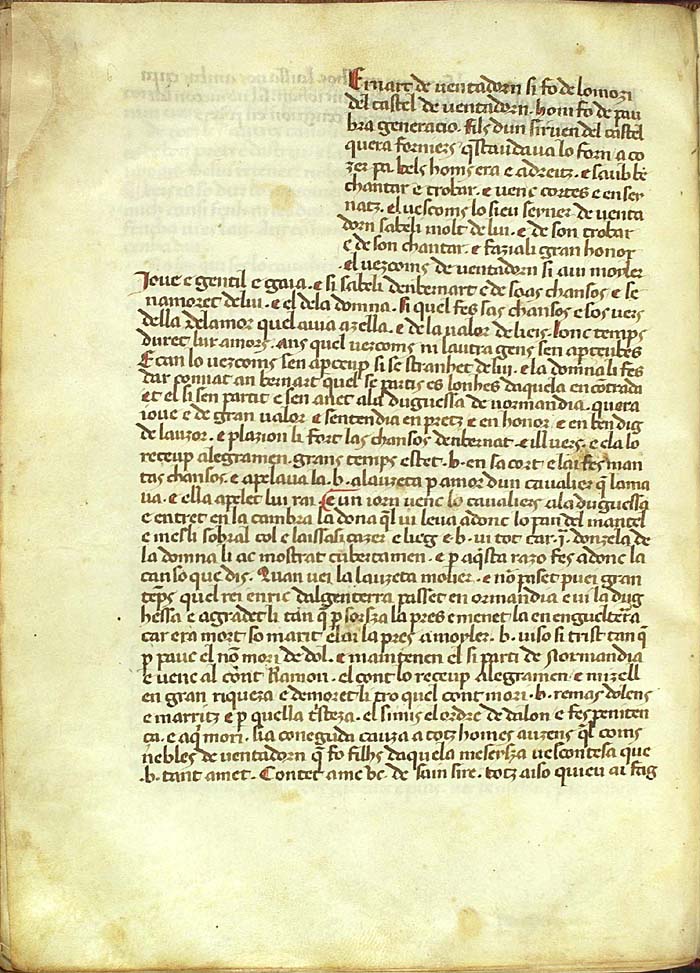 Ernart de uentadorn si fo de lomozi
del castel de uentadorn. hom fo de pau
bra generacio. fils dun siruen del castel
quera forniers qescaudaua lo forn a co
zer pa bels homs era e adreitz. e saub be
chantar e trobar. e uenc cortes e enser
natz. el uescoms lo sieu seyner de uenta
dorn sabeli molt de lui. e de son trobar
e de son chantar. e faziali gran honor
.el uezcoms de uentadorn si auia moyler
Ioue e gentil e gaia. e si sabeli denbernart e de soas chansos e se
namoret de lui. e el dela domna. si quel fes sas chansos e sos uers
della e del amor quel auia az ella. e de la ualor de lieis. lonc temps
duret lur amors. Ans quel uezcoms ni lautra gens sen aperceubes
E can lo uezcoms sen aperceup si se stranhet de lui. e la domna li fes
dar comiat an bernart quel se partis es lonhes daquela encontrada
et el si sen partit e sen anet ala duguessa de normandia. quera
ioue e de gran ualor. e sentendia en pretz e en honor e en ben dig
de lauzor. e plazion li fort las chansos denbernat. e ill uers. e ela lo
receup alegramen. grans temps estet .b. en sa cort e lai fes man
tas chansos. e apelaua la .b. alauzeta per amor dun caualier que lama
ua. e ella apelet lui rai. e un iorn uenc lo caualiers ala duguessa
e entret en la cambra la dona quel ui leua adonc lo pan del mantel
e mes li sobral col e laissasi cazer e lieg e .b. ui tot car .i. donzela de
la domna li ac mostrat cubertamen. e per aqsta razo fes adonc la
canso que dis. Quan uei la lauzeta moher. e no paset puei gran
temps quel rei enric dalgenterra passet en ormandia e ui la dug
hessa e agradet li tan que per forsza la pres e menet la en engueltera
car era mort so marit e lai la pres a moyler. b. uiso si trist tan que
per pauc el non mori de dol. e maintenen el si parti de Normandia
e uenc al cont Ramon. el cont lo receup Alegramen e mizell
en gran riqueza e demoret li tro quel cont mori. b. remas dolens
e marritz e per quella tristeza. el si mis el ordre de dalon e fes peniten
ca. e aqi mori. sia coneguda cauza a totz homes auzens quel coms
nebles de uentadorn que fo filhs daquela meseysza uescontesa que
.b. tant amet. Contet a me uc. de sain sire. totz aiso quieu ai fag